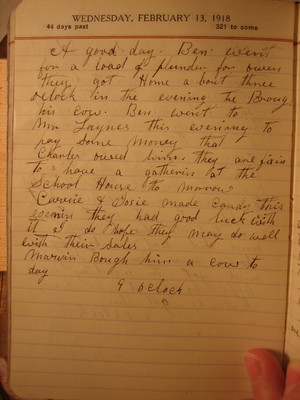 WEDNESDAY, FEBRUARY 13, 1918
44 days past 321 to come
A good day. Ben went
for a load of plunder for owen
they got Home a bout three
oclock in the evening he Broug
his cow. Ben went to
Mr Laynes this evening to
pay some money that
Charter owed him. they are goin
to have a gatherin at the
School House to morrow
Carrie & Josie made candy this
evenin they had good luck with
it I do hope they may do well
with their sales
Marvin Bough him a cow to
day
9 oclock